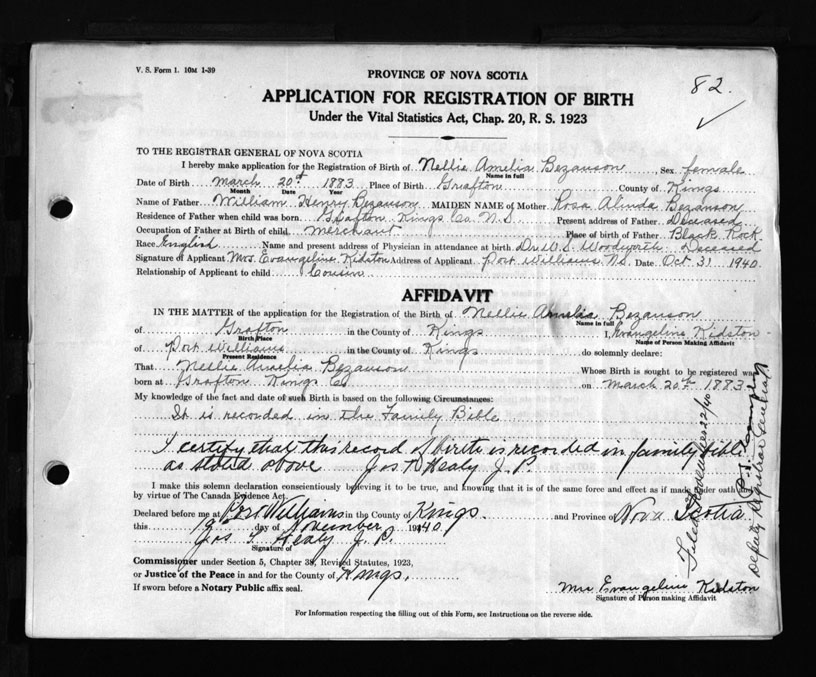 V. S. Form 1. 10M 1-39
82.
PROVINCE OF NOVA SCOTIA
APPLICATION FOR REGISTRATION OF BIRTH
Under the Vital Statistics Act, Chap. 20, R. S. 1923
TO THE REGISTRAR GENERAL OF NOVA SCOTIA
I hereby make application for the Registration of Birth of Nellie Amelia Bezanson, Sex female
Name in full
Date of Birth March 20th 1883 Place of Birth Grafton County of Kings
Month Date Year
Name of Father William Henry Bezanson MAIDEN NAME of Mother Rosa Alinda Bezanson
Residence of Father when child was born Grafton Kings Co. N.S. Present address of Father Deceased
Occupation of Father at Birth of child merchant Place of birth of Father Black Rock
Race English Name and present address of Physician in attendance at birth Woodworth Deceased
Signature of Applicant Mrs. Evangeline Kidston Address of Applicant Port Williams N.S. Date Oct 31 1940.
Relationship of Applicant to child Cousin
AFFIDAVIT
IN THE MATTER of the application for the Registration of the Birth of Nellie Amelia Bezanson
Name in full
of Grafton in the County of Kings I, Evangeline Kidston
Birth Place Name of Person Making Affidavit
of Port Williams in the County of Kings do solemnly declare:
Present Residence
That Nellie Amelia Bezanson Whose Birth is sought to be registered was
born at Grafton Kings Co on March 20th 1883
My knowledge of the fact and date of such Birth is based on the following Circumstances:
It is recorded in the Family Bible
I certify that this record of birth is recorded in family bible
as stated above Jos Healy J. P.
I make this solemn declaration conscientiously believing it to be true, and knowing that it is of the same force and effect as if made under oath and
by virtue of The Canada Evidence Act.
Declared before me at Port Williams in the County of Kings. and Province of Nova Scotia
this 19 day of November 1940
Jos Healy J. P.
Signature of
Commissioner under Section 5, Chapter 38, Revised Statutes, 1923,
or Justice of the Peace in and for the County of Kings.
If sworn before a Notary Public affix seal.
Mrs Evangeline Kidston
Signature of Person making Affidavit
For Information respecting the filling out of this Form, see Instructions on the reverse side.
Filed 22/40
Deputy Registrar General